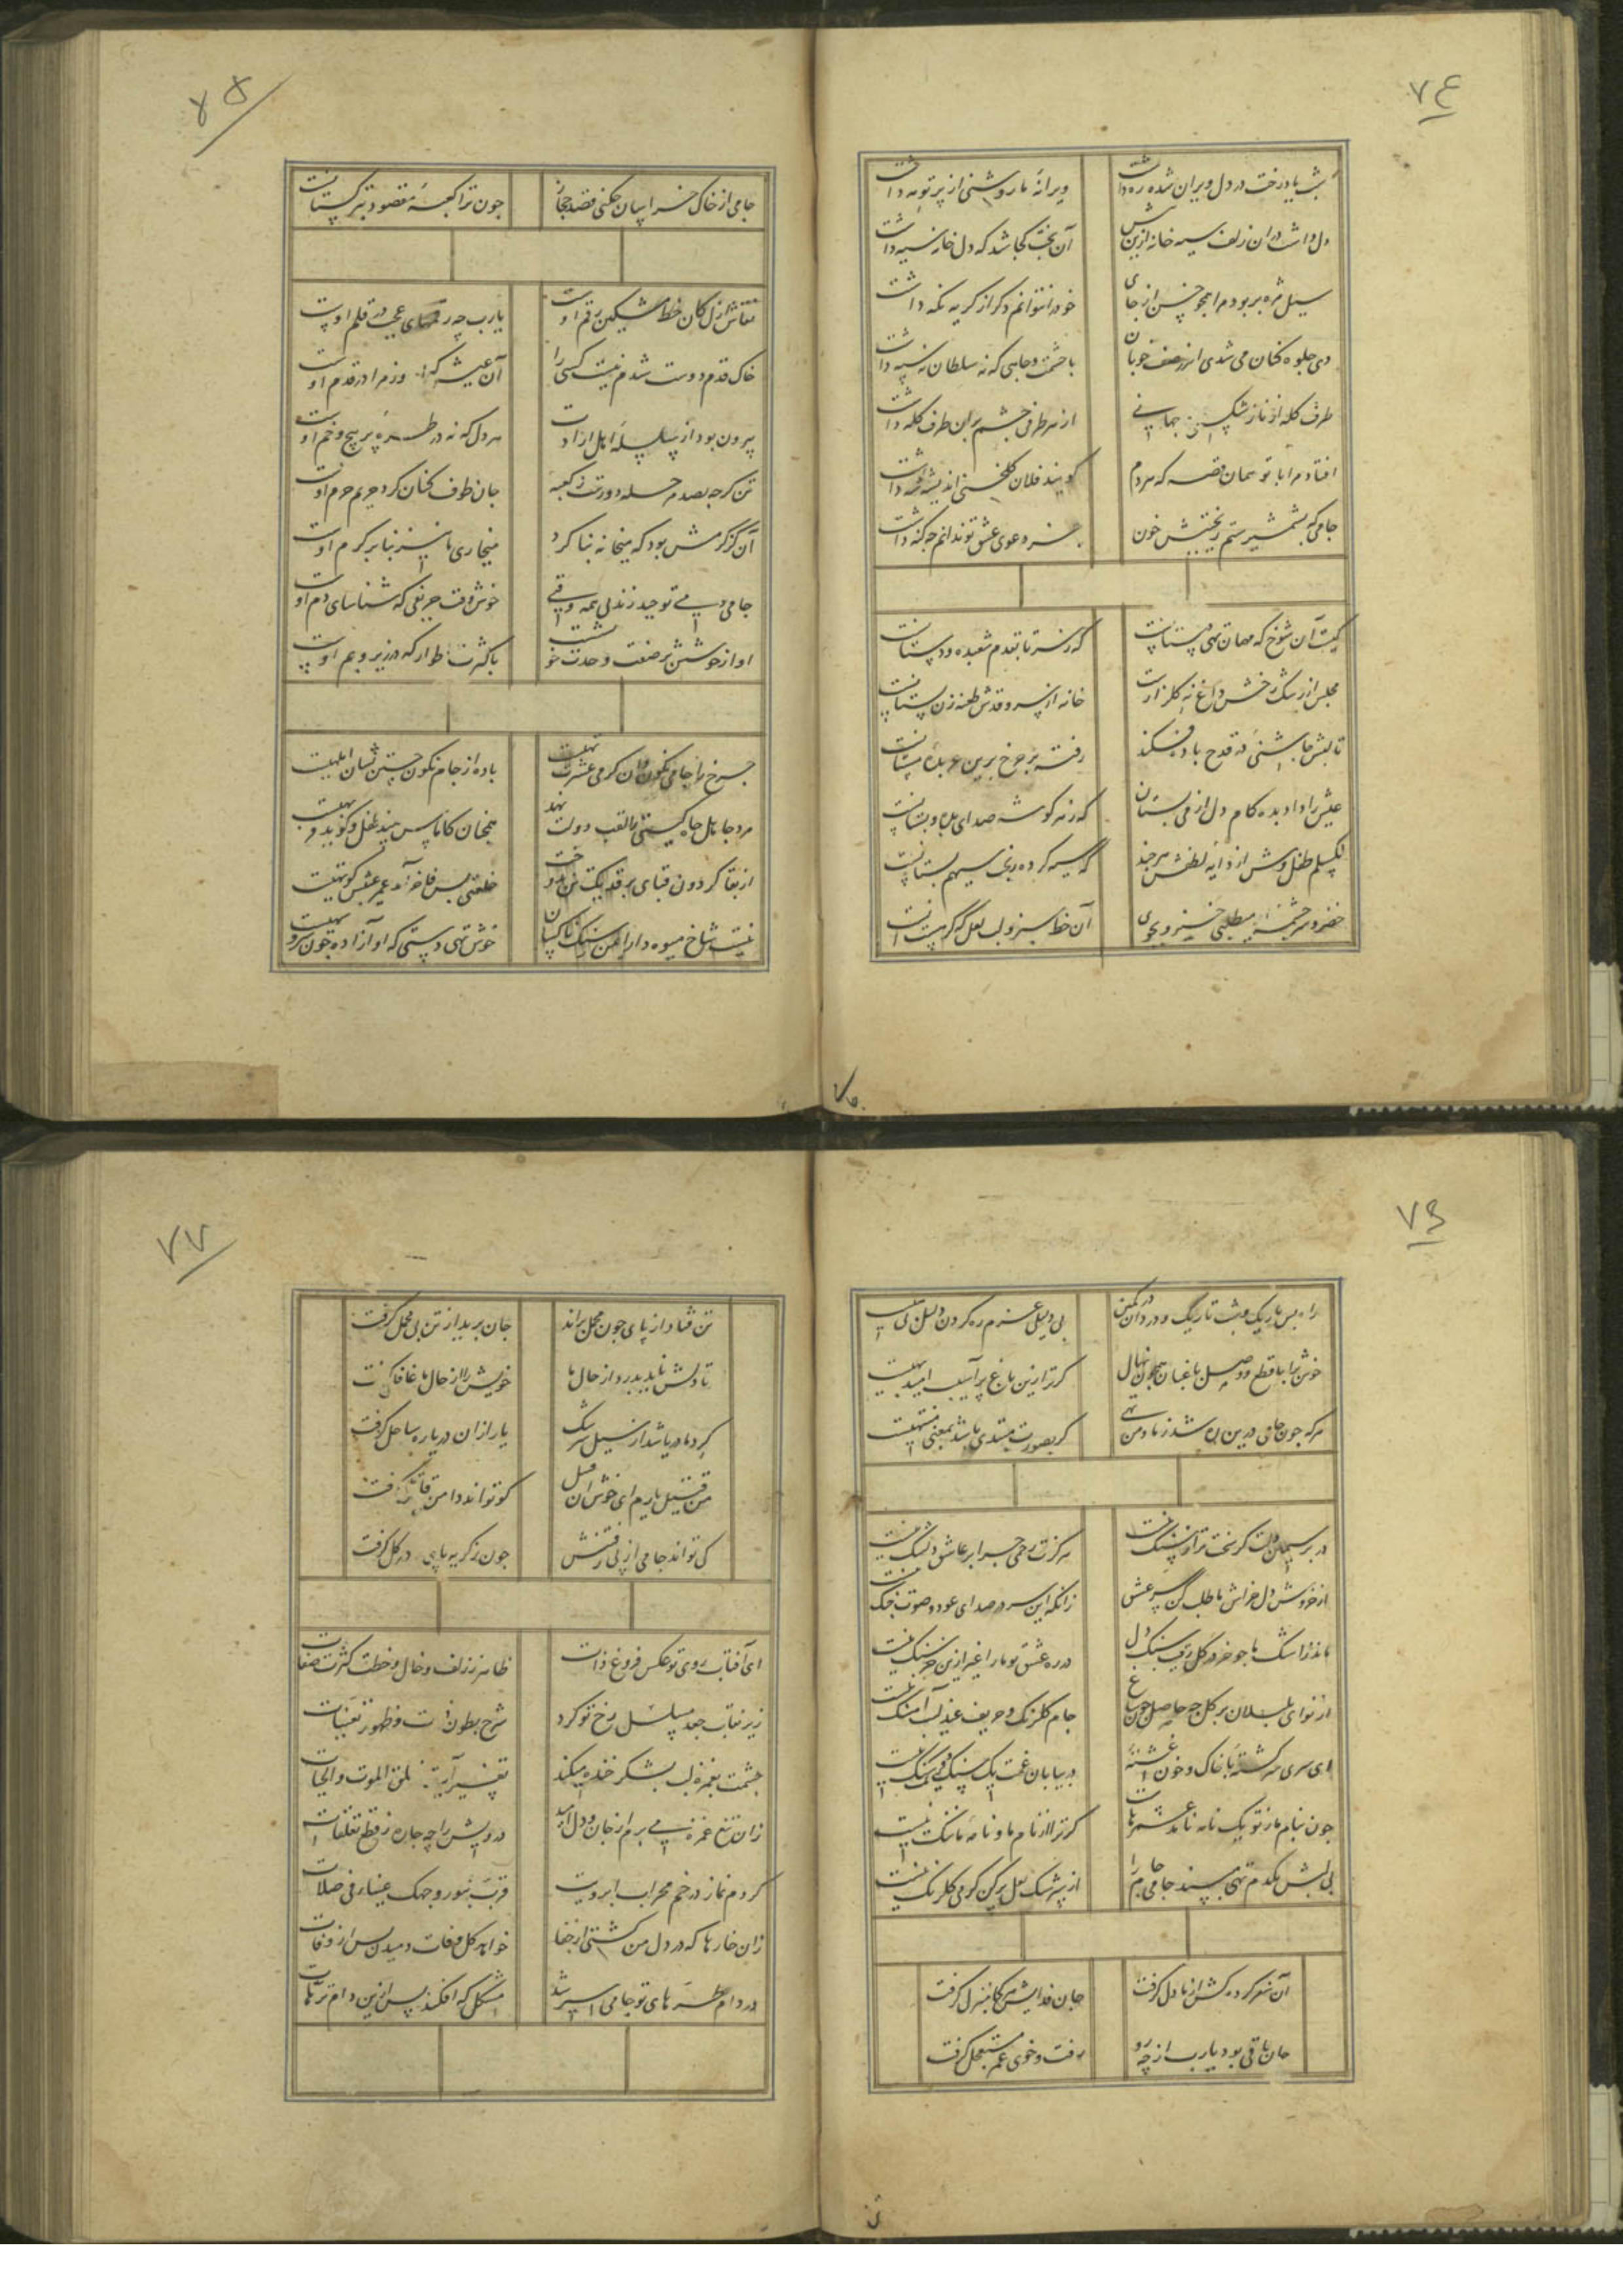 ۷۴
شب یاد رخت در دل ویران شده ره داشت ویرانهٔ ما روشنی از پرتو مه داشت
دل داشت در ان زلف سیه خانه ازین پیش آن بخت کجا شد که دل خانه سیه داشت
سیل مژه بربود مرا همچو خس از جای خود را نتوانم دگر از گریه نگه داشت
دی جلوه کنان می شدی اندر صف خوبان با حشمت و جاهی که نه سلطان نه سپه داشت
طرف کله از ناز شکستی و جهانی از هر طرفی چشم بران طرف کله داشت
افتاد مرا با تو همان قصه که مردم گویند فلان گلخنی اندیشه شه داشت
جامی که بشمشیر ستم ریختیش خون جز دعوی عشق تو ندانم چه گنه داشت
کیست آن شوخ که مهمان تهی دستانست که ز سر تا بقدم شعبده و دستانست
مجلس از رشک رخش داغ نه گلزارست خانه از سرو قدش طعنه زن بستانست
تا لبش چاشنیی در قدح باده فکند رفته بر چرخ برین عربدهٔ مستانست
عیش را داد بده کام دل از می بستان که ز هر گوشه صدای بده و بستانست
نگسلم طفل وش از دایهٔ لطفش هر چند که سیه کرده برغم سیهم پستانست
خضر و سرچشمه چه میطلبی خیز و بجوی آن خط سبز و لب لعل که گر هست آنست
۷۵
جامی از خاک خراسان چکنی قصد حجاز چون ترا کعبهٔ مقصود بترکستانست
نقاش ازل کان خط مشکین رقم اوست یارب چه رقمهای عجب در قلم اوست
خاک قدم دوست شدم نیست کسی را آن عیش که امروز مرا در قدم اوست
بیرون بود از سلسلهٔ اهل ارادت هر دل که نه در طرهٔ پر پیچ و خم اوست
تن گرچه بصد مرحله دورست ز کعبه جان طوف کنان گرد حریم حرم اوست
آن کز کرمش بود که میخانه بنا کرد میخاری ما نیز بنا بر کرم اوست
جامی ز می توحید زند نی همه وقتی خوش وقت حریفی که شناسای دم اوست
آواز خوشش نغمه صفت وحدت خویشست با کثرت اطوار که در زیر و بم اوست
چرخ را جام نگون دان کز می عشرت تهیست باده از جام نگون جستن نشان ابلهیست
مرد جاهل جاه گیتی را لقب دولت نهد همچنان کاماس بیند طفل و گوید فربهیست
از بقا گردون قبای بر قد یک تن ندوخت خلعتی بس فاخر آمد عمر عیبش کوتهیست
نیست شاخ میوه دار ایمن ز سنگ ناکسان خوش تهی دستی که او آزاده چون سرو سهیست
۷۶
راه بس باریک و شب تاریک و دزدان در کمین بی دلیلی عزم ره کردن دلیل بی رهیست
خوش برا با قطع و وصل باغبان همچون نهال گر ترا زین باغ پر آسیب امید بهیست
هر که چون جامی درین ره شد ز ما و من تهی گر بصورت مبتدی باشد بمعنی منتهیست
در بر سیمین دلت گر سخت تر از سنگ نیست هرگزت رحمی چرا بر عاشق دلتنگ نیست
از خروش دل خراش ما طلب کن سر عشق زانکه این سر در صدای عود و صوت چنگ نیست
ماند ز اشک ما چو خر در گل رقیب سنگ دل در ره عشق تو ما را غیر ازین خرسنگ نیست
از نوای بلبلان بر گل چه حاصل چون بباغ جام گلرنگ و حریف عندلیب آهنگ نیست
ای سری سرگشته با خاک و خون آغشته
چون بنام ما ز تو یک نامه نامد عمرهاست گر ترا از نام ما و نامهٔ ما ننگ نیست
بی لبش یکدم تهی مپسند جامی جام را از سرشک لعل پر کن گر می گلرنگ نیست
آن سفر کرده کش از ما دل گرفت جان فدایش هر کجا منزل گرفت
جان باقی بود یارب از چه رو رفت و خوی عمر مستعجل گرفت
۷۷
تن فتاد از پای چون محمل براند جان برید از تن پی محمل گرفت
تا دلش ناید بدرد از حال ما خویش را از حال ما غافل گرفت
گرد ما دریا شد از سیل سرشک یار ازان دریا ره ساحل گرفت
من قتیل یارم ای خوش ان قتیل کو تواند دامن قاتل گرفت
کی تواند جامی از پی رفتنش چون ز گریه پای در گل گرفت
ای آفتاب روی تو عکس فروغ ذات ظاهر ز زلف و خال و خطت کثرت صفات
زیر نقاب جعد مسلسل رخ تو کرد شرح بطون ذات و ظهور تعینات
چشمت بغمزه لب بشکر خنده میکند تفسیر آیهٔ خلق الموت والحیات
زان تیغ غمزه می برم از جان و دل امید درویش را چه چاره ز قطع تعلقات
کردم نماز در خم محراب ابرویت قرت بنور وجهک عینای فی صلات
زان خارها که در دل من کشتی از جفا خواهد گل وفات دمیدن پس از وفات
در دام طره های تو جامی اسیر شد مشکل که افکند پس ازین دام ترهات